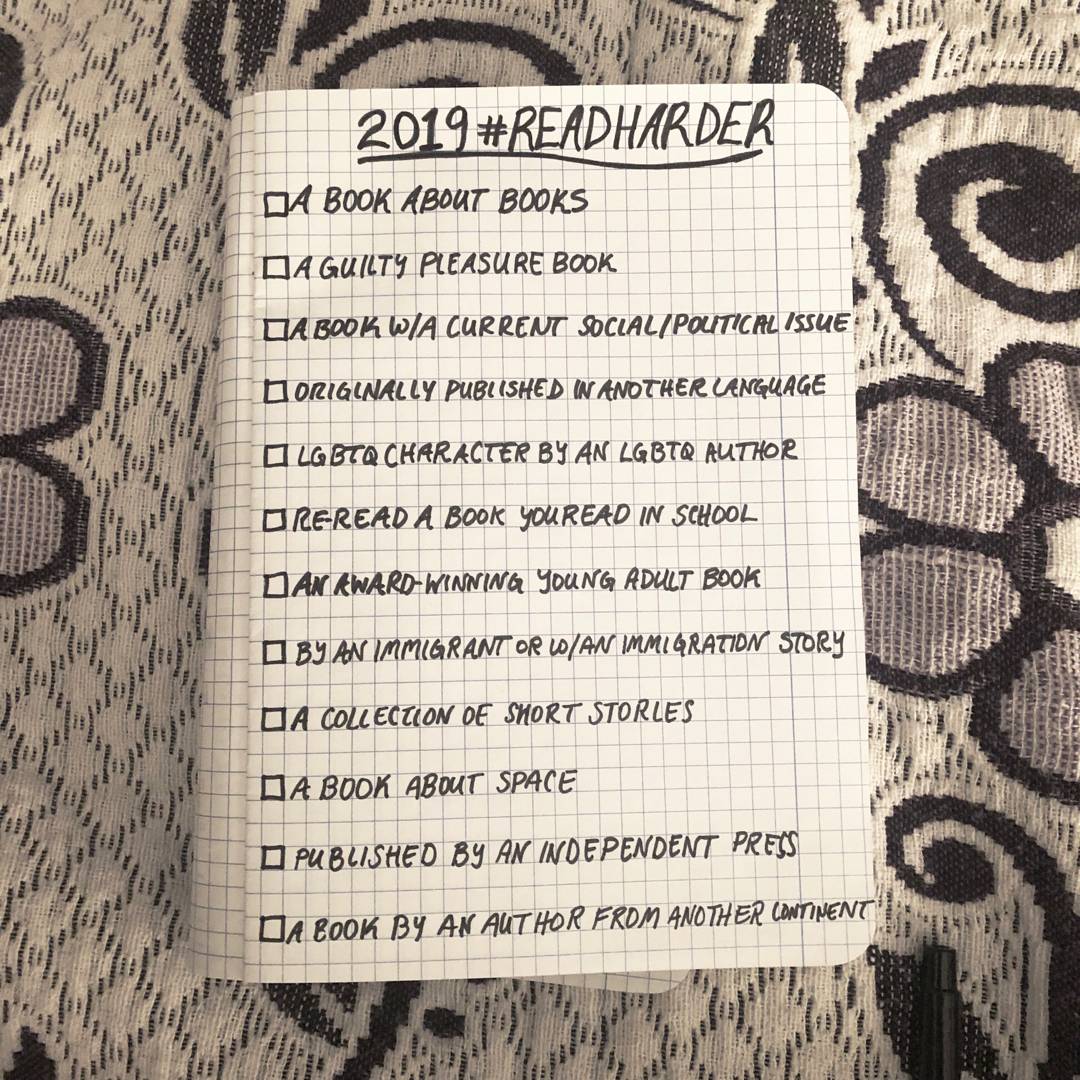 2019 #READHARDER
A BOOK ABOUT BOOKS
A GUILTY PLEASURE BOOK
A BOOK W/A CURRENT SOCIAL/POLITICAL ISSUE
ORIGINALLY PUBLISHED IN ANOTHER LANGUAGE
LGBTQ CHARACTER BY AN LGBTQ AUTHOR
RE-READ A BOOK YOU READ IN SCHOOL
AN AWARD-WINNING YOUNG ADULT BOOK
BY AN IMMIGRANT OR W/AN IMMIGRATION STORY
A COLLECTION OF SHORT STORIES
A BOOK ABOUT SPACE
PUBLISHED BY AN INDEPENDENT PRESS
A BOOK BY AN AUTHOR FROM ANOTHER CONTINENT